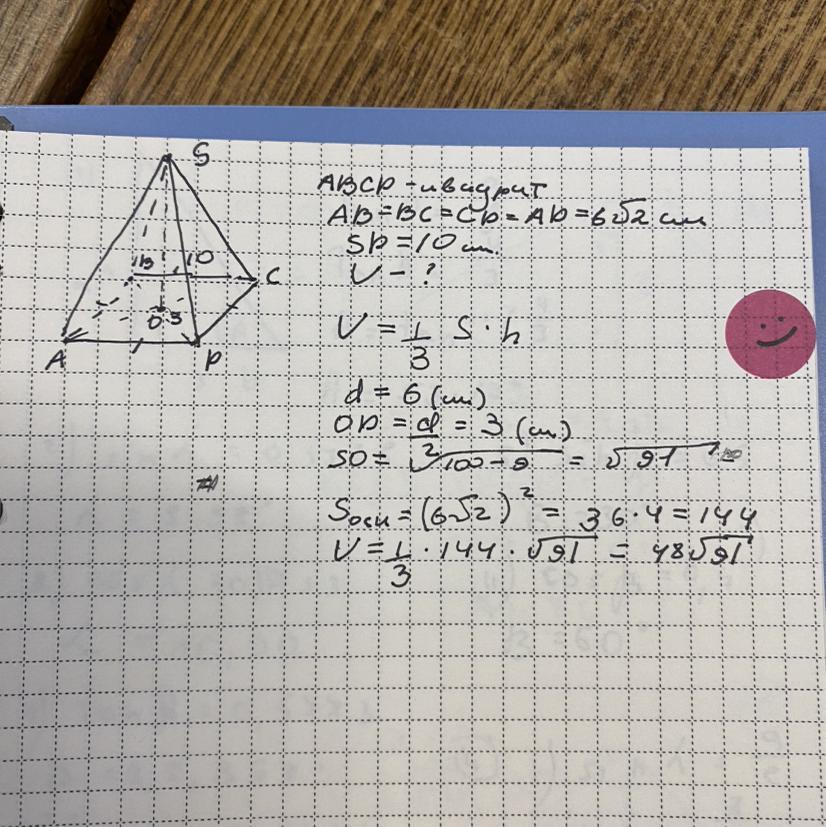 S
B 10 C
O 3
A D
ABCD - квадрат
AB=BC=CD=AD=6√2 см
SD=10 см.
V - ?
V = 1/3 S · h
d = 6 (см)
OD = d/2 = 3 (см)
SO = √100-9 = √91
Sосн = (6√2)² = 36·4 = 144
V = 1/3 · 144 · √91 = 48√91